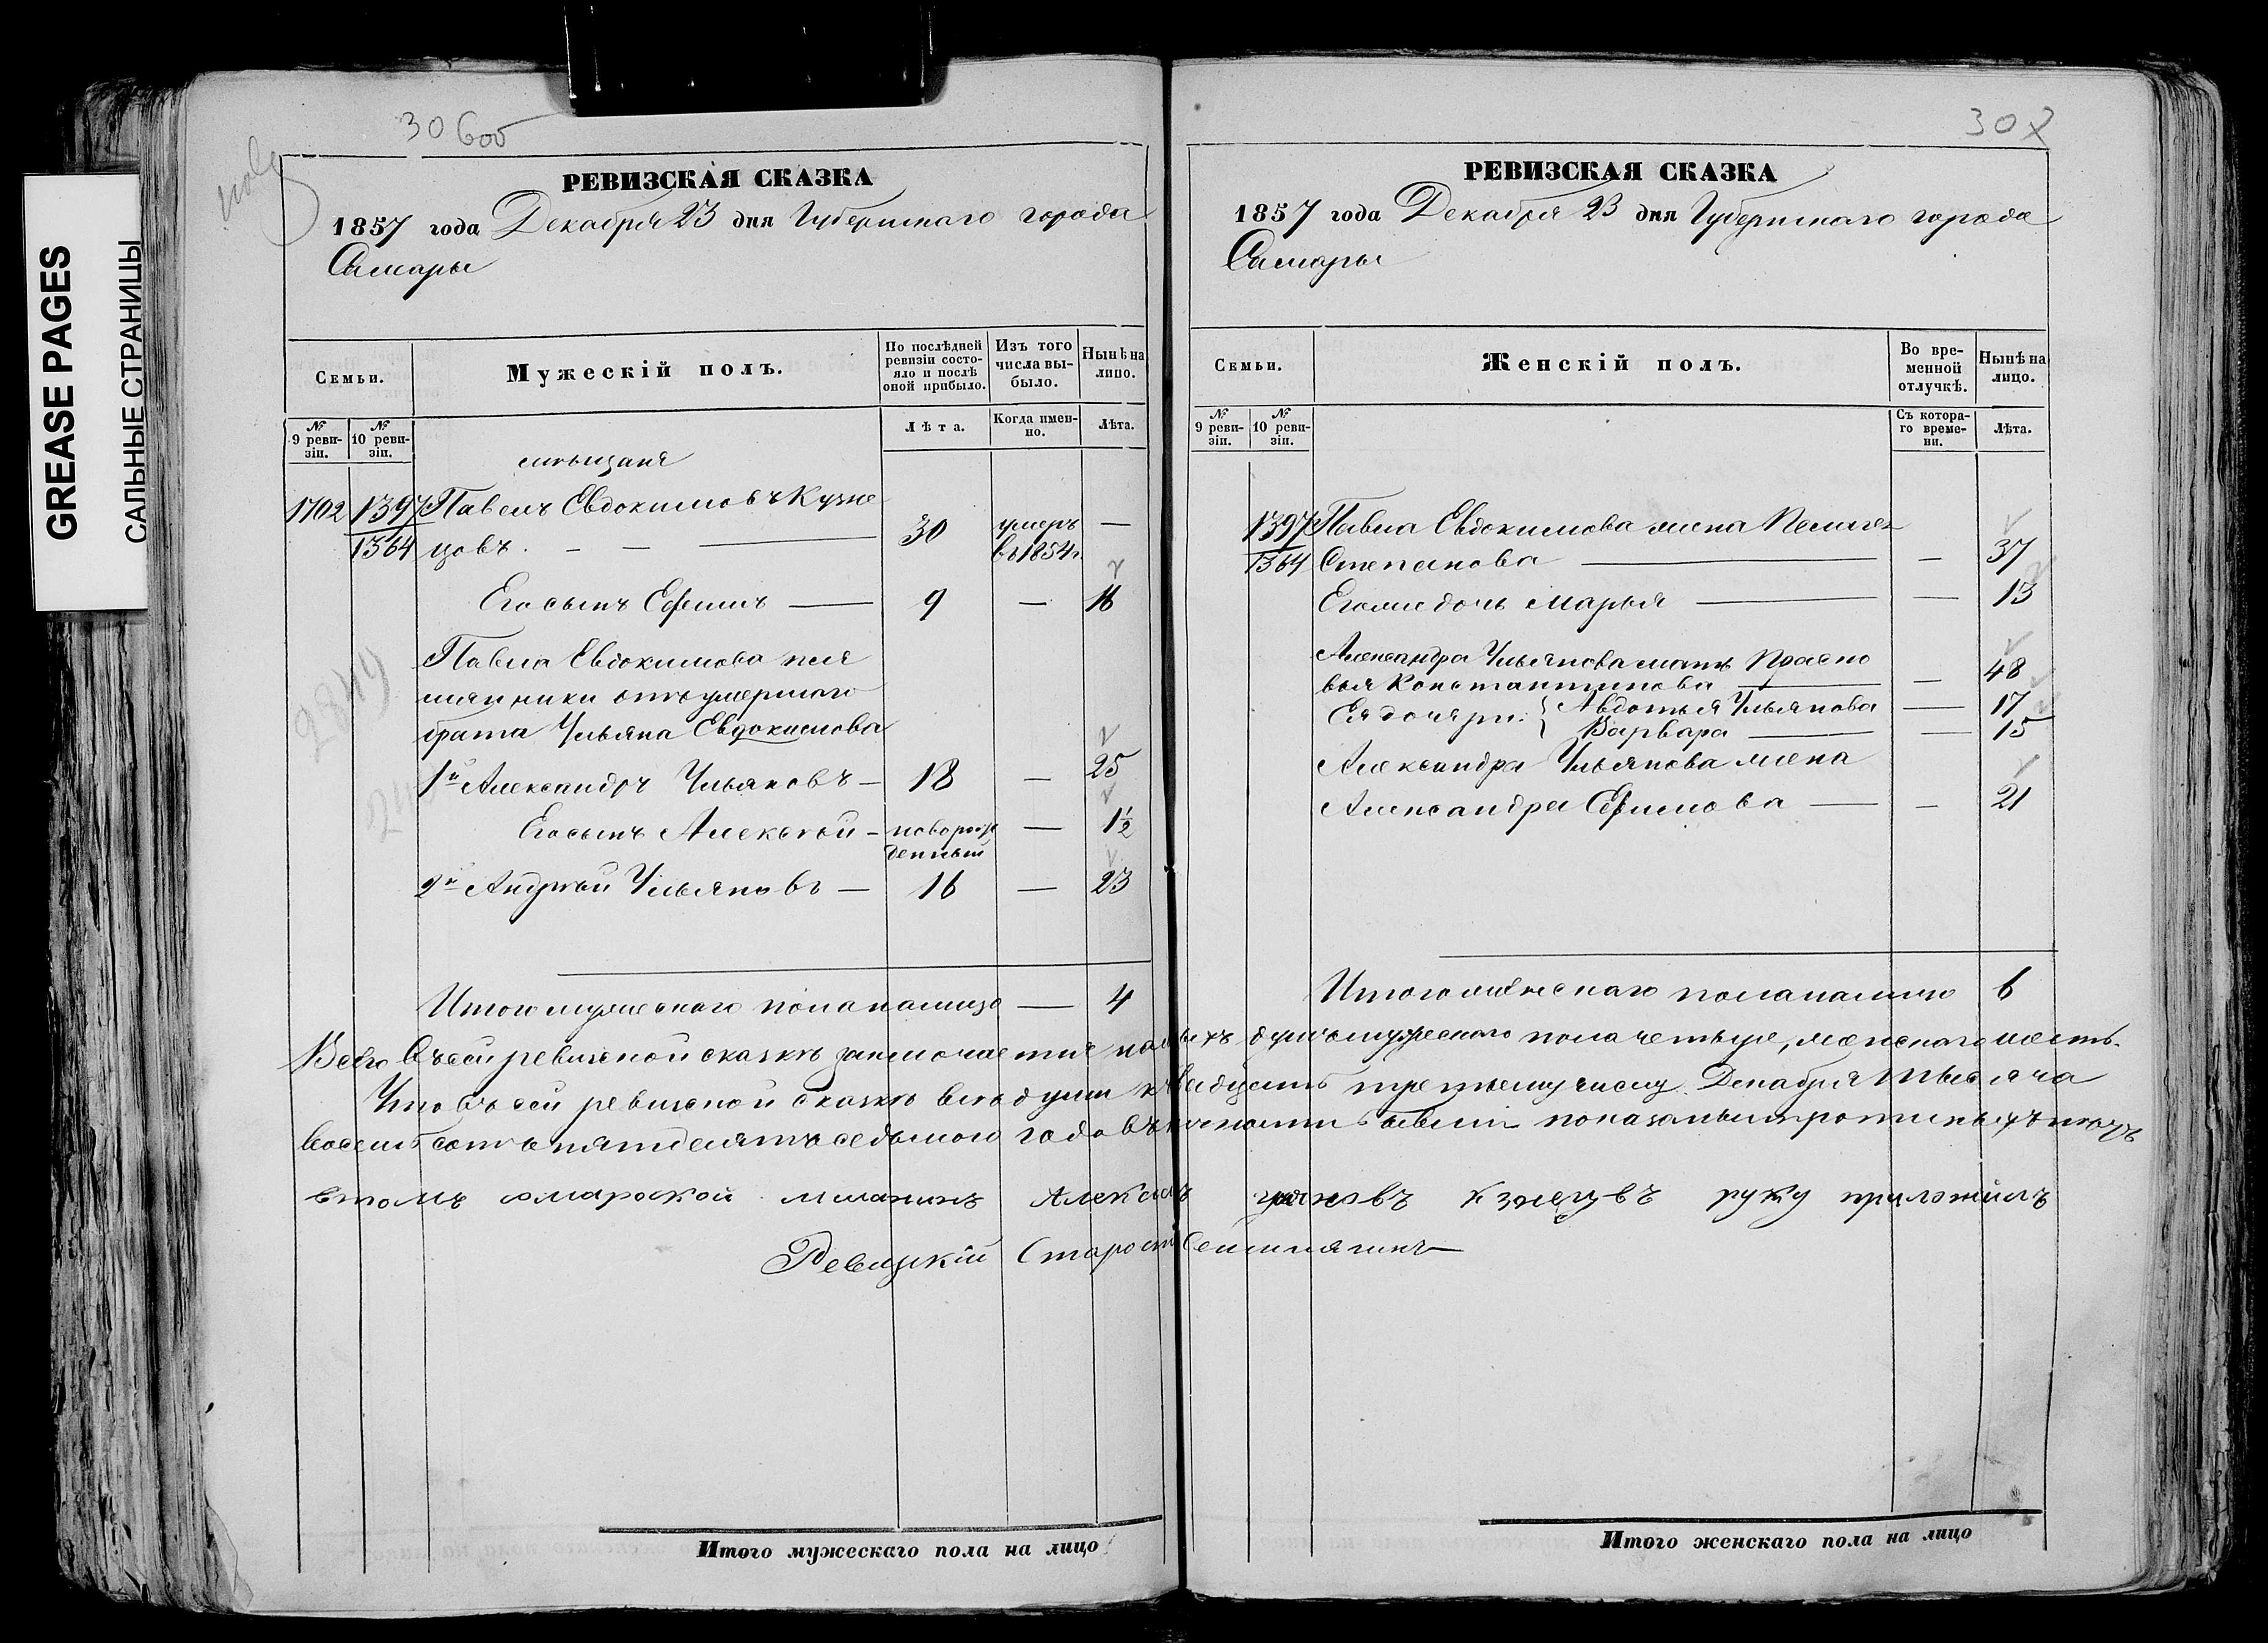 GREASE PAGES
САЛЬНЫЕ СТРАНИЦЫ
306об
РЕВИЗСКАЯ СКАЗКА
1857 года Декабря 23 дня Губернскаго города
Самары
Семьи.
Мужескій полъ.
По послѣдней ревизіи состояло и послѣ оной прибыло.
Изъ того числа выбыло.
Нынѣ на лицо.
№ 9 ревизіи.
№ 10 ревизіи.
Лѣта.
Когда именно.
Лѣта.
мѣщане
1702 1397 Павелъ Евдокимовъ Кузне
1364 цовъ. — — 30 умеръ въ 1854 г. —
Его сынъ Ефимъ — 9 — 16
Павла Евдокимова пле
мянники отъ умершаго
брата Ульяна Евдокимова
1й Александръ Ульяновъ — 18 — 25
Его сынъ Алексѣй — новорож
денный — 1½
2й Андрей Ульяновъ — 16 — 23
Итого мужескаго пола налицо — 4
Итого мужескаго пола на лицо
307
РЕВИЗСКАЯ СКАЗКА
1857 года Декабря 23 дня Губернскаго города
Самары
Семьи.
Женскій полъ.
Во временной отлучкѣ.
Нынѣ на лицо.
№ 9 ревизіи.
№ 10 ревизіи.
Съ котораго времени.
Лѣта.
1397 Павла Евдокимова жена Пелагея
1364 Степанова — — 37
Его же дочь Марья — — 13
Александра Ульянова мать Праско
вья Константинова — — 48
Ея дочери: { Авдотья Ульянова — 17
Варвара — — 15
Александра Ульянова жена
Александра Ефимова — — 21
Итого женскаго пола налицо 6
Всего въ сей ревизской сказкѣ заключается наличныхъ душъ мужескаго пола четыре, женскаго шесть.
Что въ сей ревизской сказкѣ всѣ души къ двадцать третьему числу Декабря тысяча
восемьсотъ пятьдесятъ седьмого года въ наличности бывшія показаны
в томъ самарской мешанинъ Александръ Кзнецвъ руку приложилъ
Ревизскій Староста
Итого женскаго пола на лицо